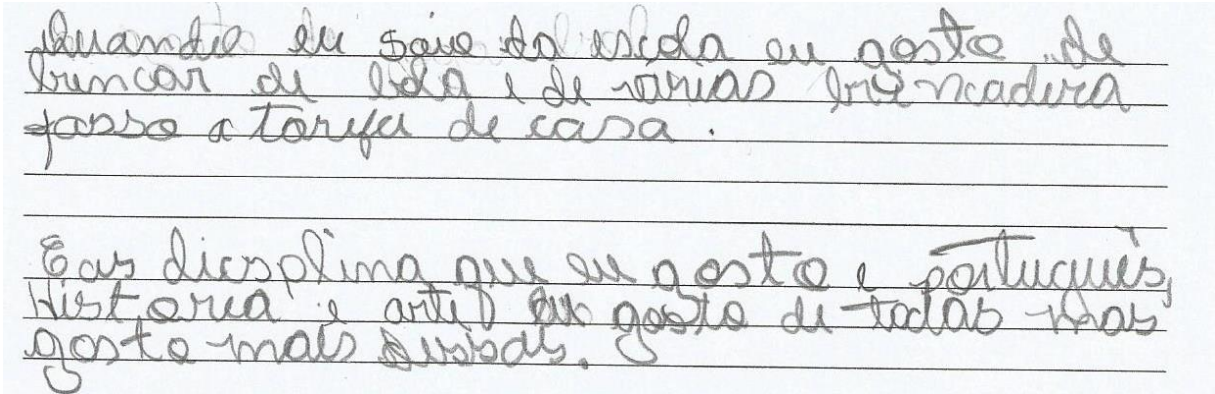 Quando eu saio da escola eu gosto de
brincar de bola e de varias brincadera
fasso a tarefa de casa.
E as dicsplina que eu gosto e português,
historia e arte eu gosto de todas mas
gosto mais dessas.